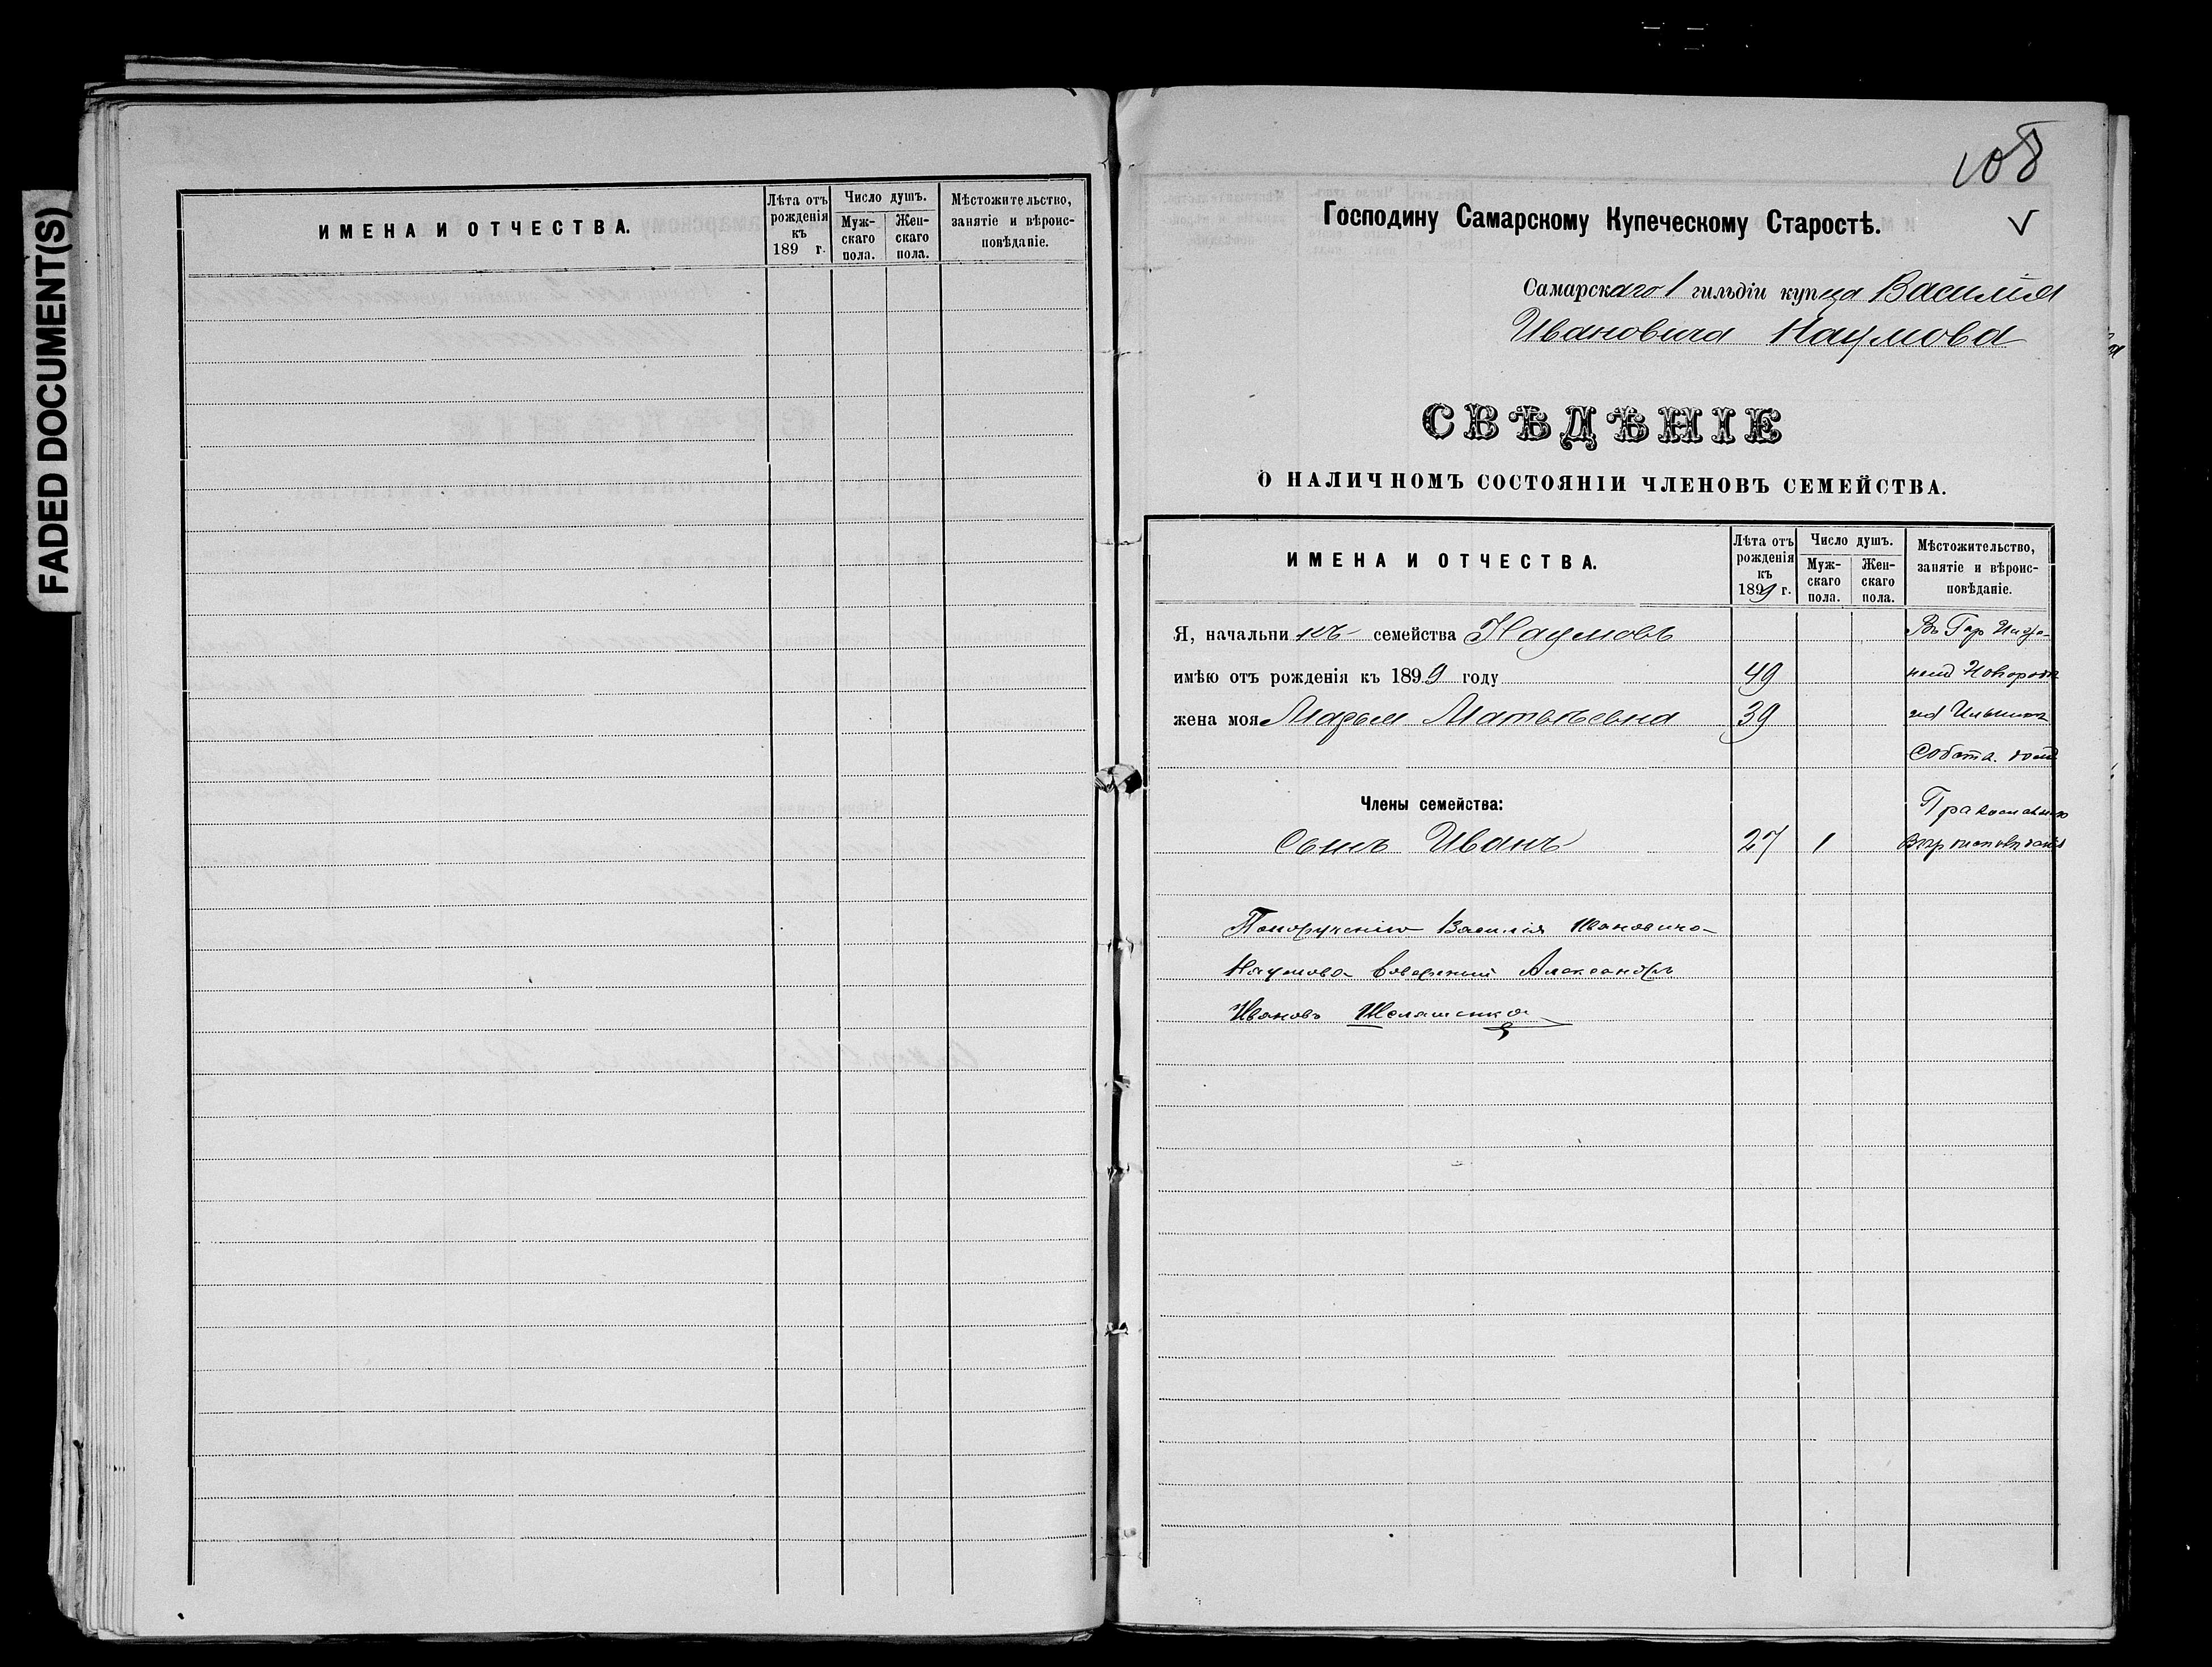 FADED DOCUMENT(S)
ИМЕНА И ОТЧЕСТВА.
Лѣта отъ рожденія къ 189 г.
Число душъ.
Муж-скаго пола.
Жен-скаго пола.
Мѣстожительство, занятіе и вѣроис-повѣданіе.
108
Господину Самарскому Купеческому Старостѣ.
Самарскаго 1 гильдіи купца Василія
Ивановича Наумова
СВѢДѢНІЕ
О НАЛИЧНОМЪ СОСТОЯНІИ ЧЛЕНОВЪ СЕМЕЙСТВА.
ИМЕНА И ОТЧЕСТВА.
Лѣта отъ рожденія къ 1899 г.
Число душъ.
Муж-скаго пола.
Жен-скаго пола.
Мѣстожительство, занятіе и вѣроис-повѣданіе.
Я, начальникъ семейства Наумовъ
имѣю отъ рожденія къ 1899 году 49
жена моя Марья Матвѣевна 39
Собств. домъ
Члены семейства:
Православно
Сынъ Иванъ 27 1
Вѣр исповѣданія
По порученію Василія Ивановича
Наумова Довѣренный Александръ
Ивановъ